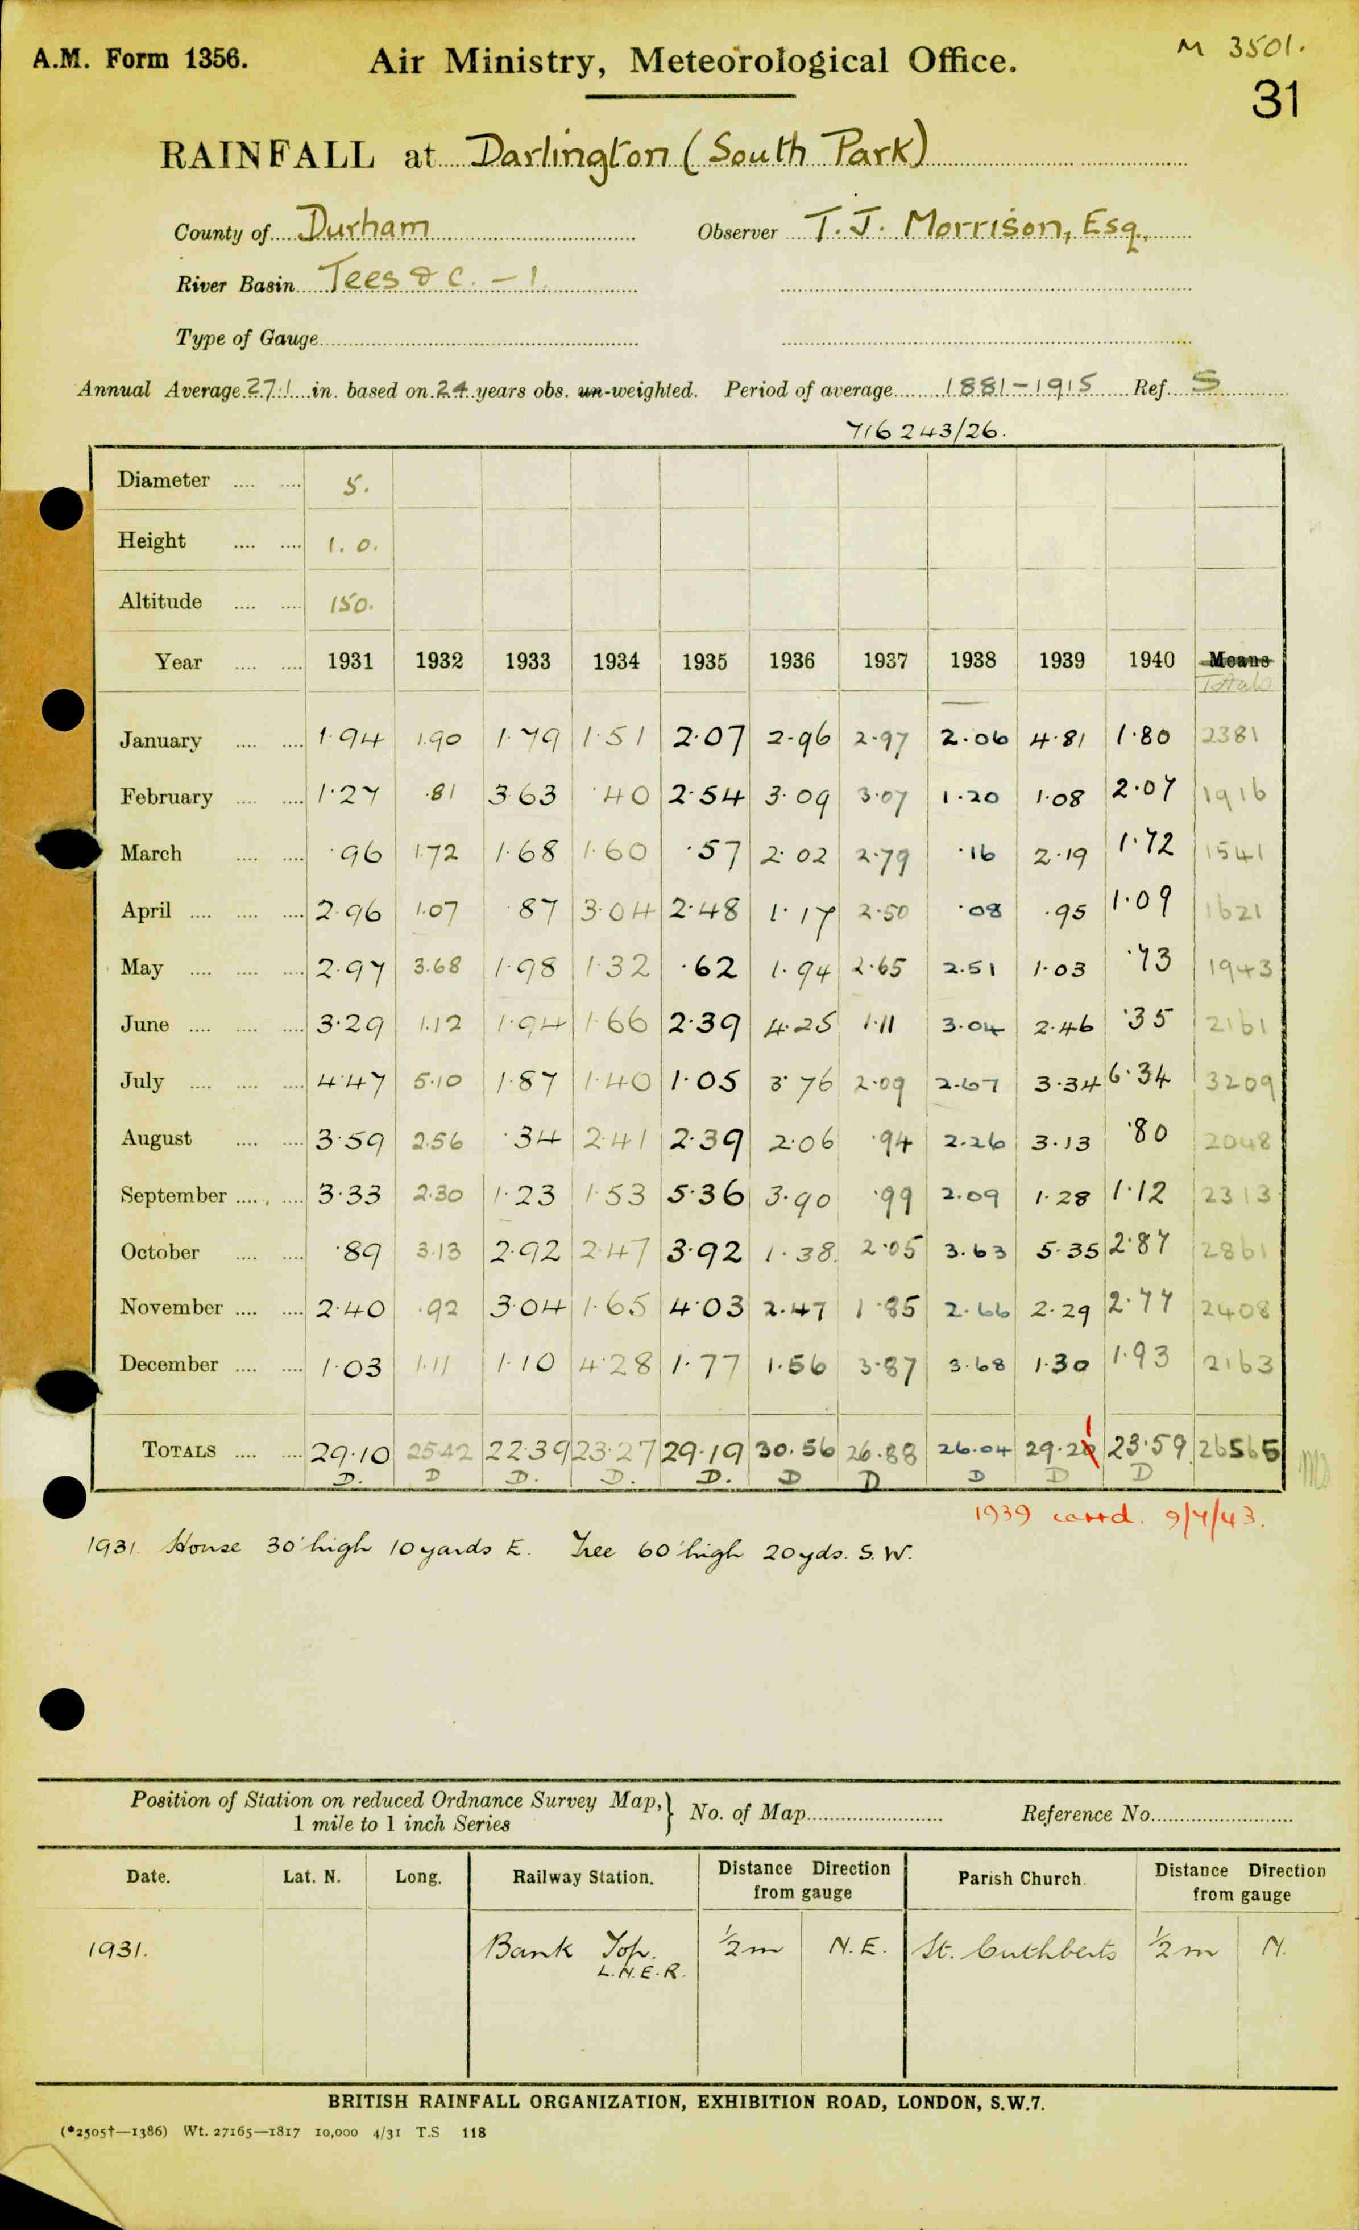 M 3501.
A.M. Form 1356. Air Ministry, Meteorological Office.
31
RAINFALL at Darlington (South Park)
County of Durham Observer T. J. Morrison, Esq.,
River Basin Tees & C. – 1.
Type of Gauge
Annual Average 27.1 in. based on 24 years obs. un-weighted. Period of average 1881-1915 Ref. S
716 243/26.
Diameter 5.
Height 1. 0.
Altitude 150.
Year 1931 1932 1933 1934 1935 1936 1937 1938 1939 1940 Means
Totals
January 1.94 1.90 1.79 1.51 2.07 2.96 2.97 2.06 4.81 1.80 2381
February 1.27 .81 3.63 .40 2.54 3.09 3.07 1.20 1.08 2.07 1916
March .96 1.72 1.68 1.60 .57 2.02 2.79 .16 2.19 1.72 1541
April 2.96 1.07 .87 3.04 2.48 1.17 2.50 .08 .95 1.09 1621
May 2.97 3.68 1.98 1.32 .62 1.94 2.65 2.51 1.03 .73 1943
June 3.29 1.12 1.94 1.66 2.39 4.25 1.11 3.04 2.46 .35 2161
July 4.47 5.10 1.87 1.40 1.05 3.76 2.09 2.67 3.34 6.34 3209
August 3.59 2.56 .34 2.41 2.39 2.06 .94 2.26 3.13 .80 2048
September 3.33 2.30 1.23 1.53 5.36 3.90 .99 2.09 1.28 1.12 2313
October .89 3.13 2.92 2.47 3.92 1.38 2.05 3.63 5.35 2.87 2861
November 2.40 .92 3.04 1.65 4.03 2.47 1.85 2.66 2.29 2.77 2408
December 1.03 1.11 1.10 4.28 1.77 1.56 3.87 3.68 1.30 1.93 2163
1
TOTALS 29.10 25.42 22.39 23.27 29.19 30.56 26.88 26.04 29.20 23.59 26565
D. D D. D. D. D D D D D
1939 corrd. 9/7/43.
1931. House 30' high 10 yards E. Tree 60' high 20 yds. S.W.
Position of Station on reduced Ordnance Survey Map,
1 mile to 1 inch Series
No. of Map Reference No.
Date. Lat. N. Long. Railway Station. Distance Direction from gauge Parish Church. Distance Direction from gauge
1931. Bank Top. ½ m N.E. St. Cuthberts ½ m N.
L.N.E.R.
BRITISH RAINFALL ORGANIZATION, EXHIBITION ROAD, LONDON, S.W.7.
(*2505†—1386) Wt. 27165—1817 10,000 4/31 T.S 118